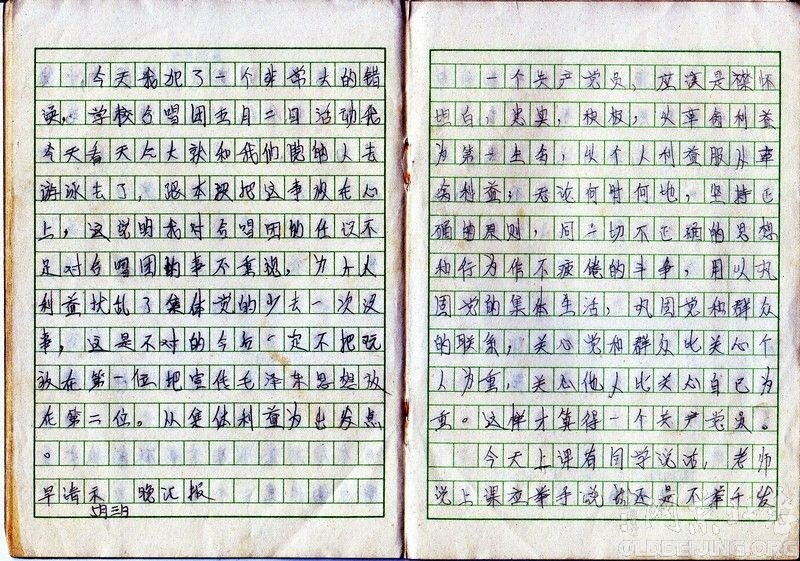 今天我犯了一个非常大的错
误，学校合唱团五月二日活动我
今天看天气大就和我们院的人去
游泳去了，跟本没把这事放在心
上，这说明我对合唱团的任识不
足对合唱团的事不重视，为个人
利益扰乱了集体觉的少去一次没
事，这是不对的今后一定不把玩
放在第一位把宣传毛泽东思想放
在第二位。从集体利益为出发点
。
早请示 晚汇报
5月3日
一个共产党员，应该是襟怀
坦白，忠实，积极，以革命利益
为第一生命，以个人利益服从革
命利益；无论何时何地，坚持正
确的原则，同一切不正确的思想
和行为作不疲倦的斗争，用以巩
固党的集体生活，巩固党和群众
的联系，关心党和群众比关心个
人为重，关心他人比关心自己为
重。这样才算得一个共产党员。
今天上课有同学说话，老师
说上课应举手说话还是不举手发
OLDBEIJING.ORG